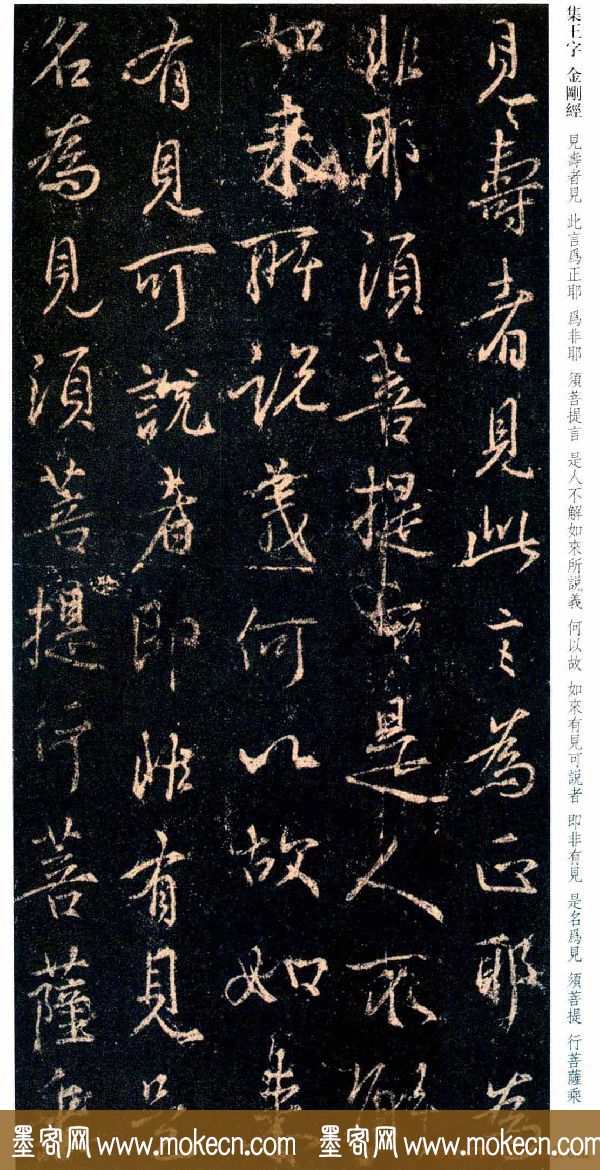 集王字 金剛經 見壽者見 此言爲正耶 爲非耶 須菩提言 是人不解如來所説義 何以故 如來有見可説者 即非有見 是名爲見 須菩提 行菩薩乘
見壽者見此言為正耶為
非耶須菩提言是人不解
如來所説義何以故如來
有見可説者即非有見是
名為見須菩提行菩薩乘
墨客网 www.mokecn.com 墨客网 www.mokecn.com